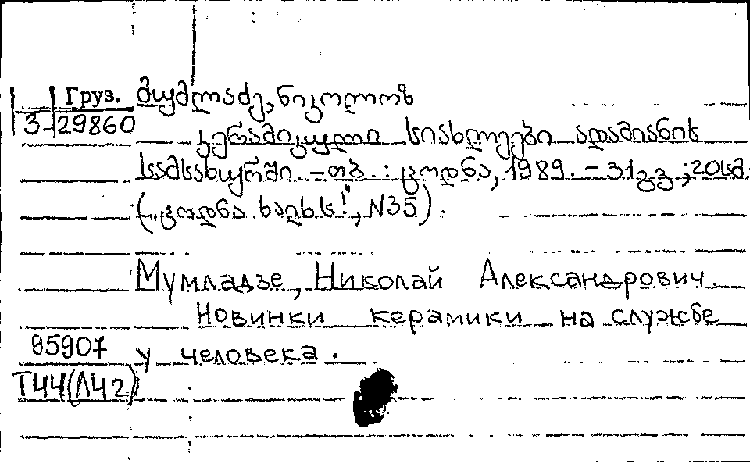 Груз. მუმლაძე, ნიკოლოზ
3-29860
კერამიკული სიახლეები ადამიანის
სამსახურში. – თბ. : ცოდნა, 1989. – 31გვ.; 20სმ.
(„ცოდნა ხალხს!", N35).
Мумладзе, Николай Александрович.
Новинки керамики на службе
95907 у человека.
Т44(Л42)